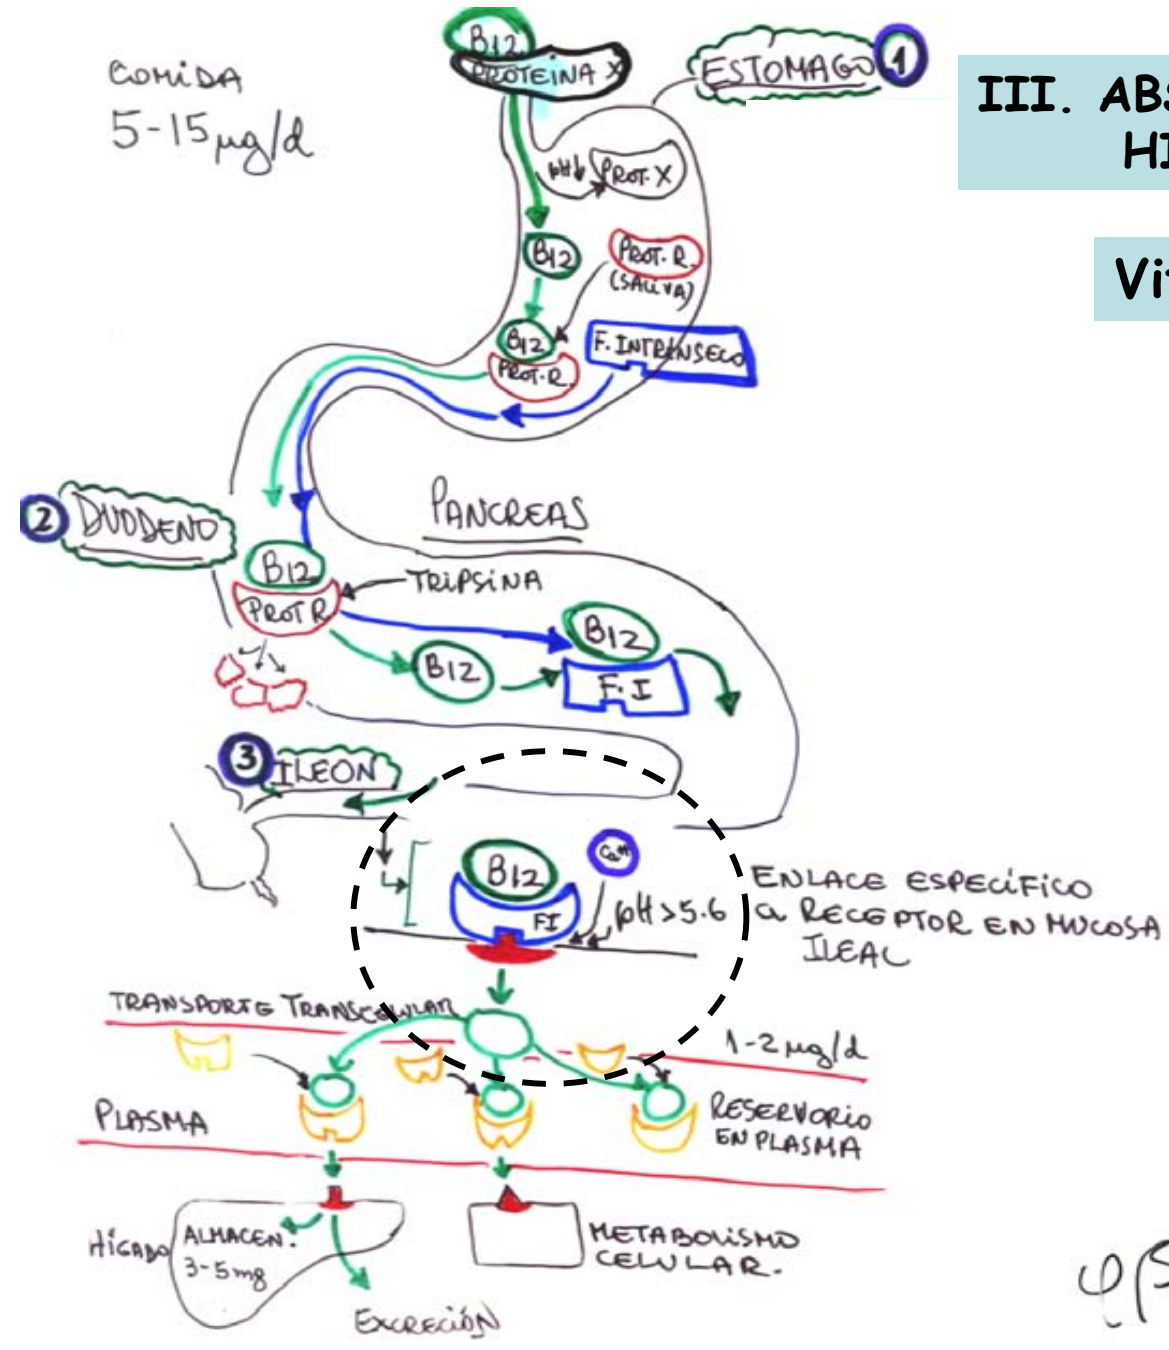 COMIDA
5-15 µg/d
B12
PROTEINA X
ESTOMAGO 1
III. ABS
HI
Vit
pH↓
PROT. X
B12
PROT. R.
(SALIVA)
B12
PROT. R.
F. INTRINSECO
2 DUODENO
PANCREAS
B12
PROT R
TRIPSINA
B12
B12
F. I
3 ILEON
B12
FI
Ca++
pH>5.6
ENLACE ESPECÍFICO
a RECEPTOR EN MUCOSA
ILEAL
TRANSPORTE TRANSCELULAR
1-2 µg/d
PLASMA
RESERVORIO
EN PLASMA
HÍGADO
ALMACEN.
3-5 mg
EXCRECIÓN
METABOLISMO
CELULAR.